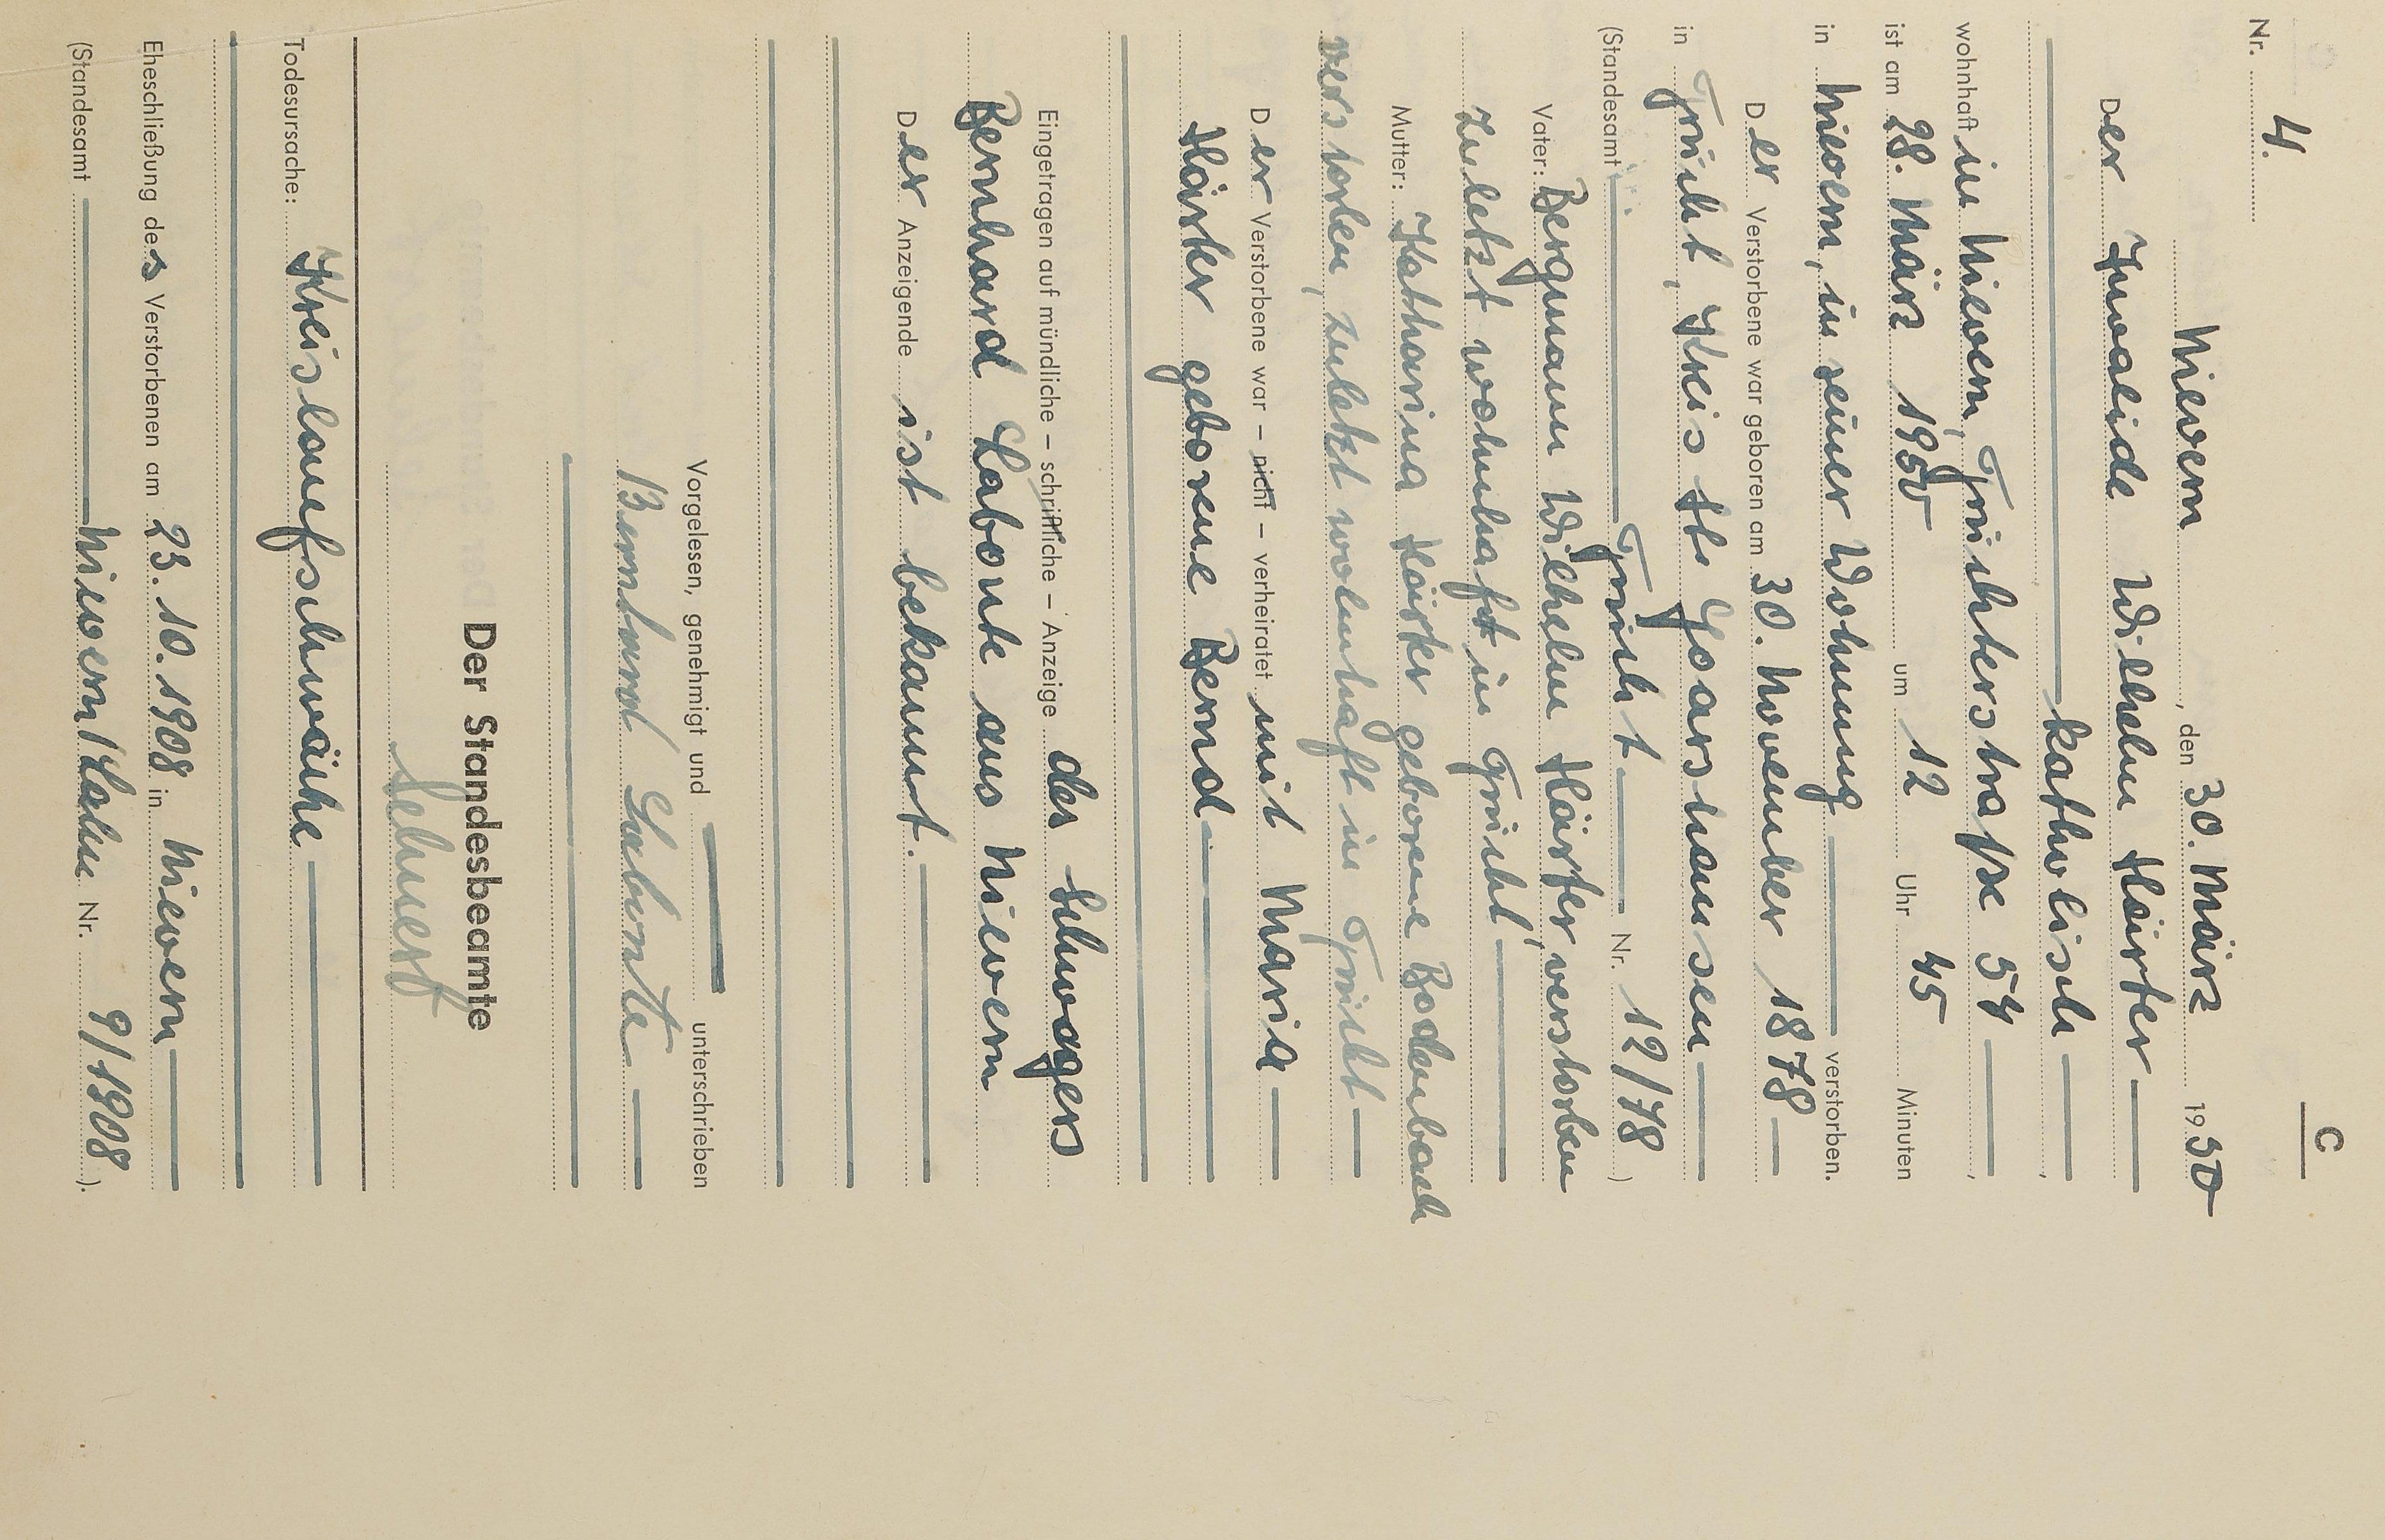 C
Nr. 4.
Nievern, den 30. März 1950
Der Invalide Wilhelm Härter
katholisch,
wohnhaft in Nievern, Früchterstraße 54,
ist am 28. März 1950 um 12 Uhr 45 Minuten
in Nievern, in seiner Wohnung verstorben.
Der Verstorbene war geboren am 30. November 1878
in Frücht, Kreis St. Goarshausen
(Standesamt Frücht Nr. 12/78)
Vater: Bergmann Wilhelm Härter, verstorben
zuletzt wohnhaft in Frücht
Mutter: Katharina Härter geborene Bodenbach
verstorben, zuletzt wohnhaft in Frücht
Der Verstorbene war – nicht – verheiratet mit Maria
Härter geborene Bernd
Eingetragen auf mündliche – schriftliche – Anzeige des Schwagers
Bernhard Labonte aus Nievern
Der Anzeigende ist bekannt.
Vorgelesen, genehmigt und unterschrieben
Bernhard Labonte
Der Standesbeamte
Todesursache: Kreislaufschwäche
Eheschließung des Verstorbenen am 23. 10. 1908 in Nievern
(Standesamt Nievern/Lahn Nr. 9/1908).